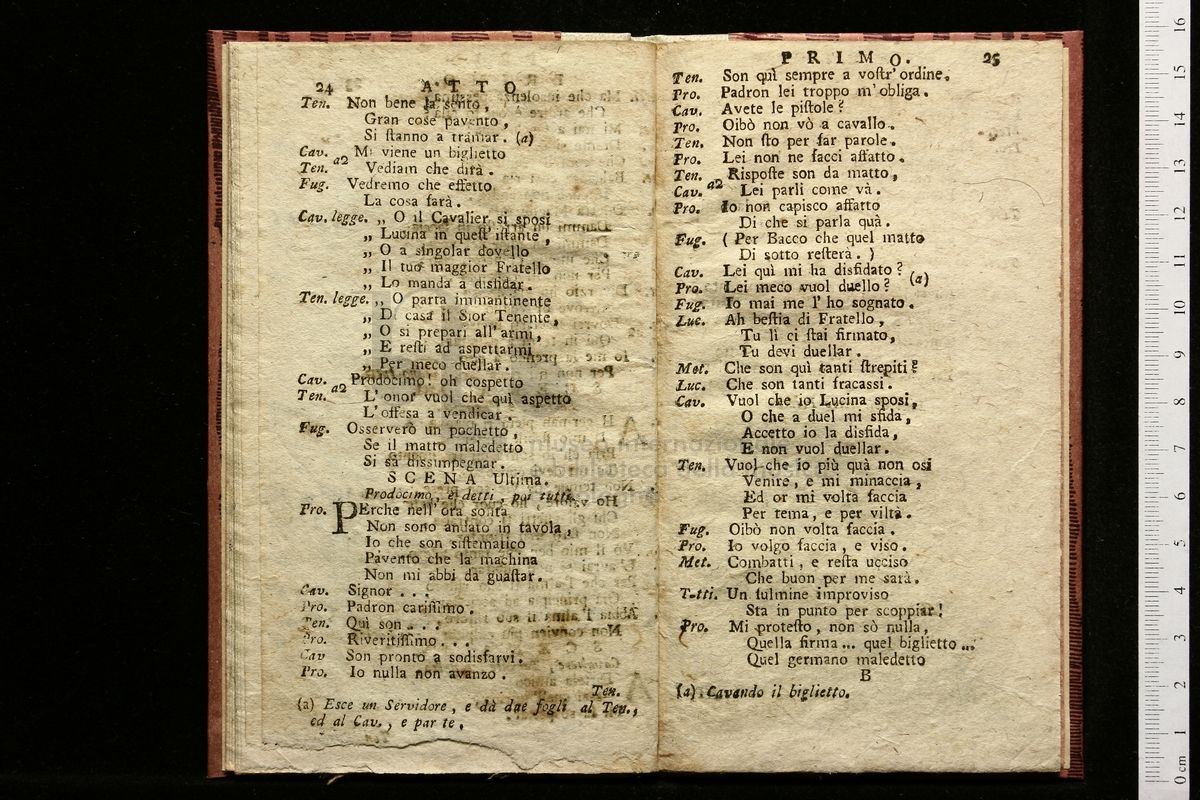 24 ATTO
Ten. Non bene la sento,
Gran cose pavento,
Si ſtanno a tramar. (a)
Cav. a2 Mi viene un biglietto
Ten. Vediam che dirà.
Fug. Vedremo che effetto
La coſa farà.
Cav. legge. „ O il Cavalier si sposi
„ Lucina in queſt' iſtante,
„ O a singolar dovello
„ Il tuo maggior Fratello
„ Lo manda a disfidar.
Ten. legge. „ O parta immantinente
„ Di casa il Sior Tenente,
„ O si prepari all' armi,
„ E reſti ad aspettarmi
„ Per meco duellar.
Cav. a2 Prodocimo! oh cospetto
Ten. L' onor vuol che quì aspetto
L' offesa a vendicar.
Fug. Osserverò un pochetto,
Se il matto maledetto
Si sà dissimpegnar.
SCENA Ultima.
Prodocimo, e detti, poi tutti.
Pro. PErche nell' ora solita
Non sono andato in tavola,
Io che son siſtematico
Pavento che la machina
Non mi abbi da guaſtar.
Cav. Signor . . .
Pro. Padron cariſſimo.
Ten. Quì son . . .
Pro. Riveritiſſimo . . .
Cav Son pronto a sodisfarvi.
Pro. Io nulla non avanzo.
Ten.
(a) Esce un Servidore, e dà due fogli al Ten.,
ed al Cav., e par te.
PRIMO. 25
Ten. Son quì sempre a voſtr' ordine.
Pro. Padron lei troppo m' obliga.
Cav. Avete le piſtole?
Pro. Oibò non vò a cavallo.
Ten. Non ſto per far parole.
Pro. Lei non ne facci affatto.
Ten. Risposte son da matto,
Cav. a2 Lei parli come và.
Pro. Io non capisco affatto
Di che si parla quà.
Fug. (Per Bacco che quel matto
Di sotto reſterà. )
Cav. Lei quì mi ha disfidato?
(a)
Pro. Lei meco vuol duello?
Fug. Io mai me l' ho sognato.
Luc. Ah beſtia di Fratello,
Tu lì ci ſtai firmato,
Tu devi duellar.
Met. Che son quì tanti ſtrepiti?
Luc. Che son tanti fracassi.
Cav. Vuol che io Lucina sposi,
O che a duel mi sfida,
Accetto io la disfida,
E non vuol duellar.
Ten. Vuol che io più quà non osi
Venire, e mi minaccia,
Ed or mi volta faccia
Per tema, e per viltà.
Fug. Oibò non volta faccia.
Pro. Io volgo faccia, e viso.
Met. Combatti, e reſta ucciso
Che buon per me sarà.
Tutti. Un fulmine improviso
Sta in punto per scoppiar!
Pro. Mi proteſto, non sò nulla,
Quella firma... quel biglietto...
Quel germano maledetto
B
(a) Cavando il biglietto.